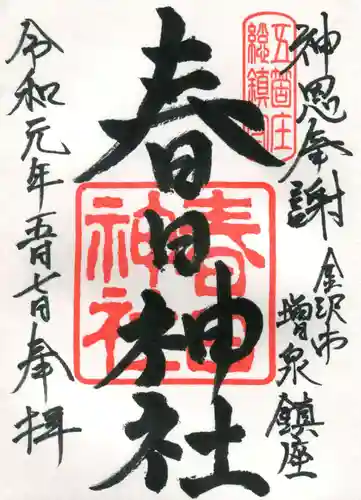 神恩奉謝
金沢市
増泉鎮座
五箇庄
総鎮守
春日神社
春日
神社
令和元年五月七日奉拝